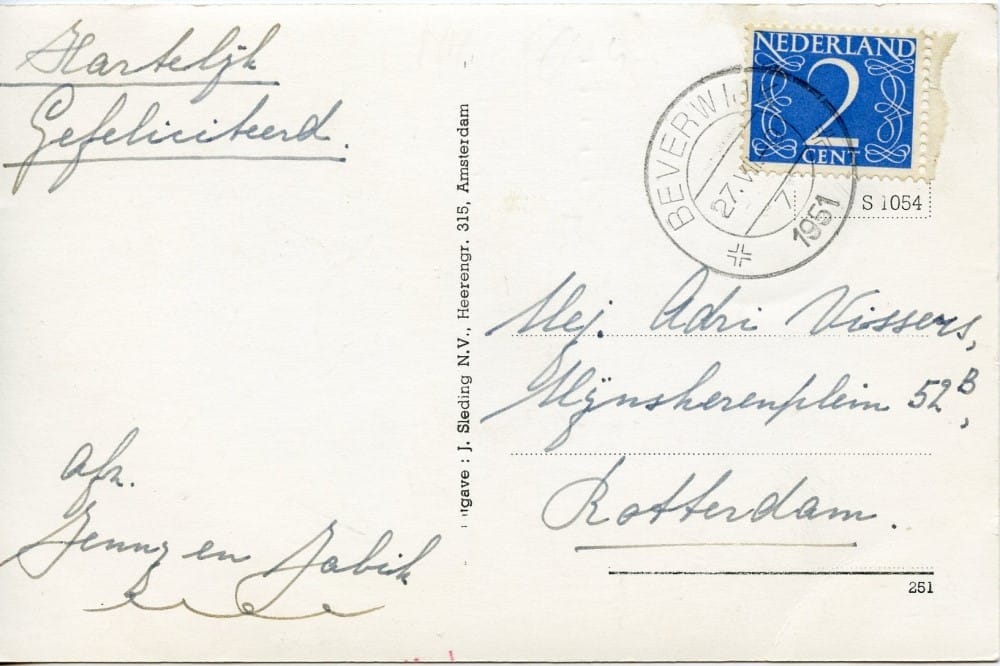 Hartelijk
Gefeliciteerd.
afz.
Jenny en Jabik
Uitgave : J. Sleding N.V., Heerengr. 315, Amsterdam
NEDERLAND
2
CENT
BEVERWIJK
27. VII
7
1951
S 1054
Mej. Adri Vissers,
Mijnsherenplein 52B,
Rotterdam.
251